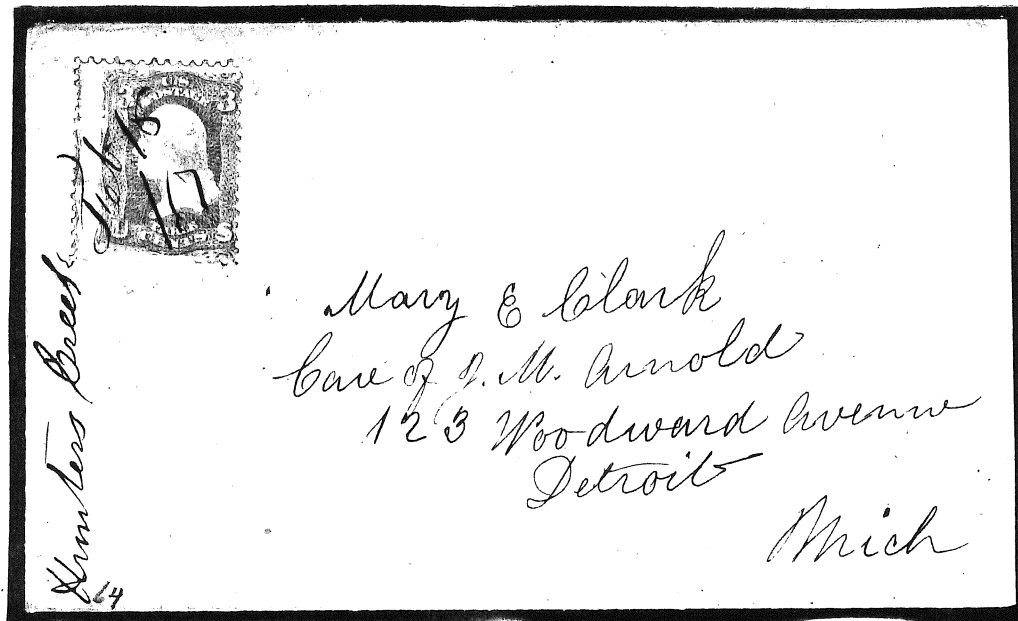 Hunters Creek
Feb 18
117
U.S.
3
U S
Mary E Clark
Care of J. M. Arnold
123 Woodward Avenue
Detroit
Mich
64